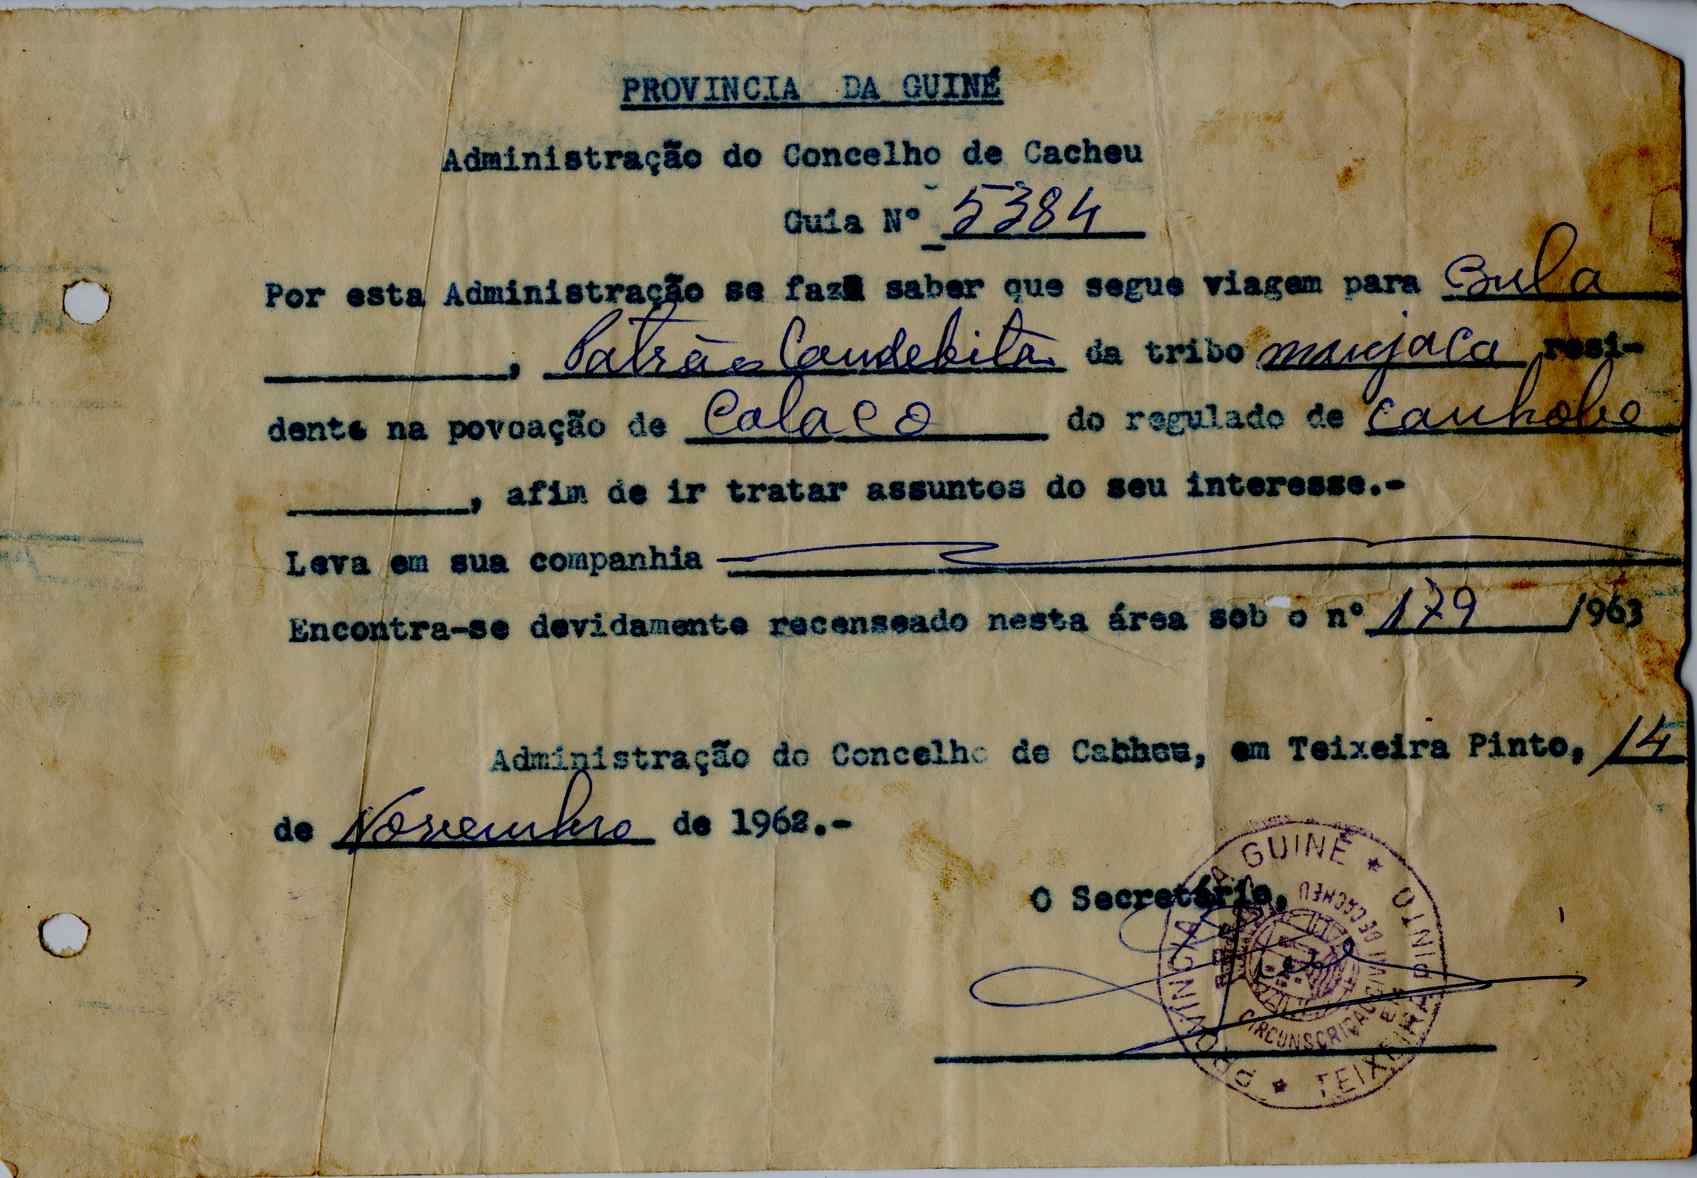 PROVINCIA DA GUINÉ
Administração do Concelho de Cacheu
Guia Nº 5384
Por esta Administração se faz saber que segue viagem para Bula
, Patrão Caudekitã da tribo manjaca resi-
dente na povoação de Calaco do regulado de Canhobe
, afim de ir tratar assuntos do seu interesse.-
Leva em sua companhia
Encontra-se devidamente recenseado nesta área sob o nº 179 /963
Administração do Concelho de Cacheu, em Teixeira Pinto, 14
de Novembro de 1963.-
O Secretário,
PROVINCIA DA GUINÉ * TEIXEIRA PINTO *
CIRCUNSCRIÇÃO CIVIL DE CACHEU